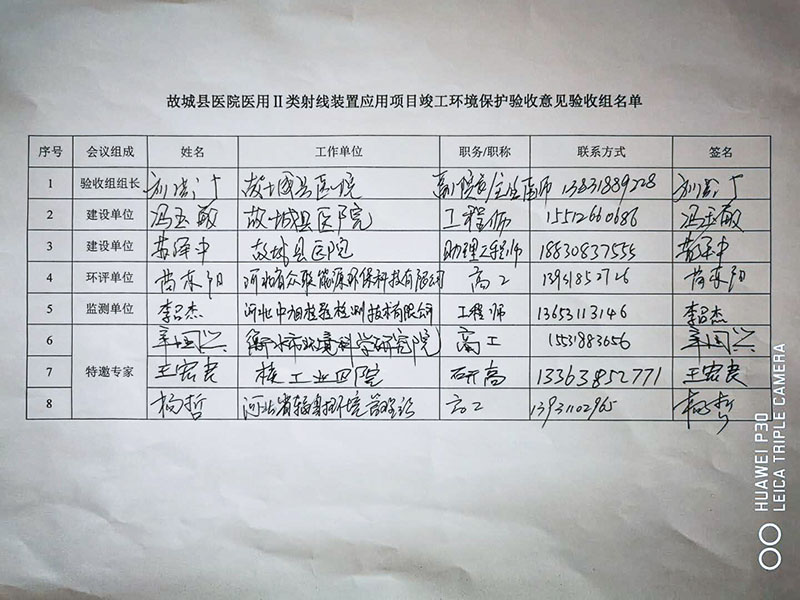 故城县医院医用Ⅱ类射线装置应用项目竣工环境保护验收意见验收组名单
序号 会议组成 姓名 工作单位 职务/职称 联系方式 签名
1 验收组组长 故城县医院 副院长/主任医师 13831889228
2 建设单位 冯玉敏 故城县医院 工程师 15512660686 冯玉敏
3 建设单位 苏泽中 故城县医院 助理工程师 18830837555 苏泽中
4 环评单位 苗东阳 河北省众联能源环保科技有限公司 高工 苗东阳
5 监测单位 李召杰 河北中旭检验检测技术有限公司 工程师 13653113146 李召杰
6 衡水市环境科学研究院 高工 15531883656
7 特邀专家 王宏良 核工业四院 研高 13363852771 王宏良
8 杨哲 河北省辐射环境管理站 高工 13931102965 杨哲
HUAWEI P30
LEICA TRIPLE CAMERA